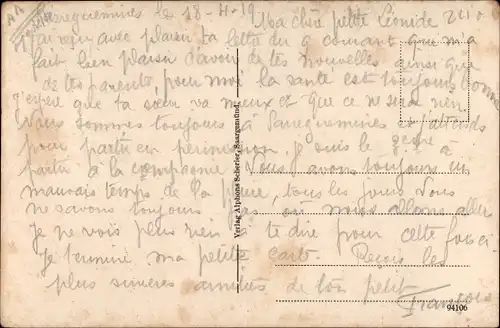 Sarreguemines le 18-4-19
Ma chère petite
J'ai reçu avec plaisir ta lettre du 6 courant qui m'a
fait bien plaisir d'avoir de tes nouvelles ainsi que
de tes parents, pour moi la santé est toujours bonne
j'espère que ta sœur va mieux et que ce ne sera rien
Nous sommes toujours à Sarreguemines et j'attends
pour partir en permission, je suis le
partir à la compagnie Nous avons toujours un
mauvais temps de la pluie, tous les jours Nous
ne savons toujours pas où nous allons aller
Je ne vois plus rien à te dire pour cette fois ci
Je termine ma petite carte. Reçois les
plus sincères amitiés de ton petit
François
Verlag Alphons Scherier, Saargemünd.
94106